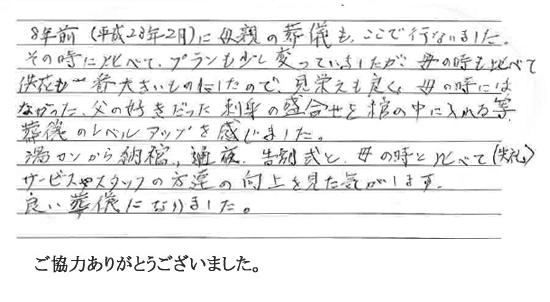 8年前(平成23年2月)に母親の葬儀も、ここで行ないました。
その時に比べて、プランも少し変っていましたが、母の時も比べて
供花も一番大きいものにしたので、見栄えも良く、母の時には
なかった、父の好きだった刺身の盛合せを棺の中に入れる等、
葬儀のレベルアップを感じました。
湯カンから納棺、通夜、告別式と、母の時と比べて(失礼)
サービスやスタッフの方達の向上を見た気がします。
良い葬儀になりました。
ご協力ありがとうございました。